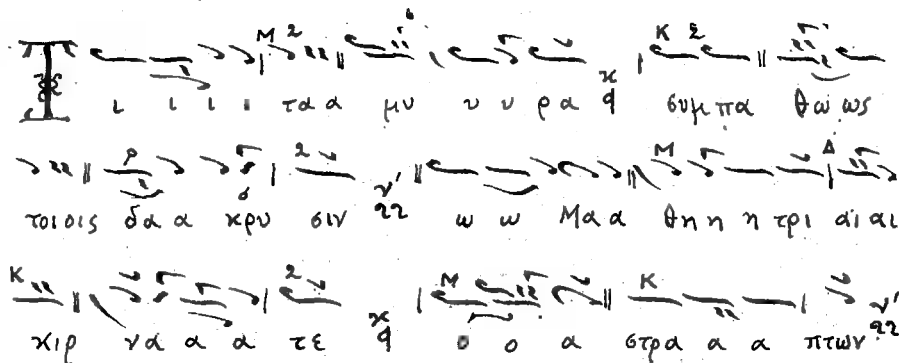 Τ ι ι ι ι τα α μυ υ υ ρα συμπα θώ ως
τοιοις δά α κρυ σιν ω ω Μα α θη η η τρι αι αι
κιρ νά α α α τε ο ο α στρα α α πτων